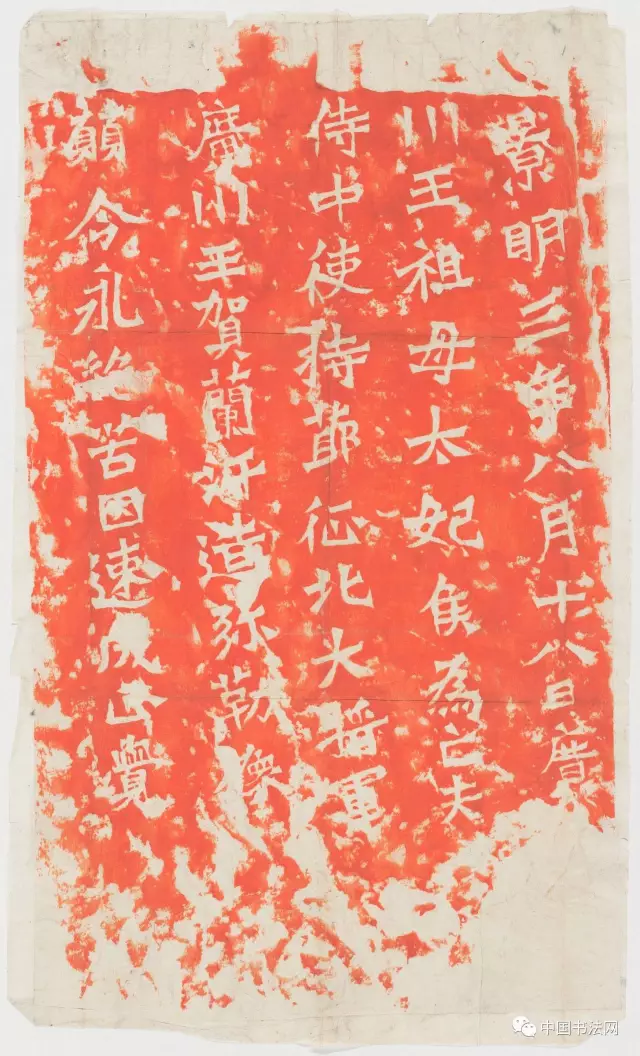 景明三年八月十八日廣
川王祖母太妃侯為亡夫
侍中使持節征北大將軍
廣川王賀蘭汗造弥勒像
願令永絕苦因速成正覺
中国书法网